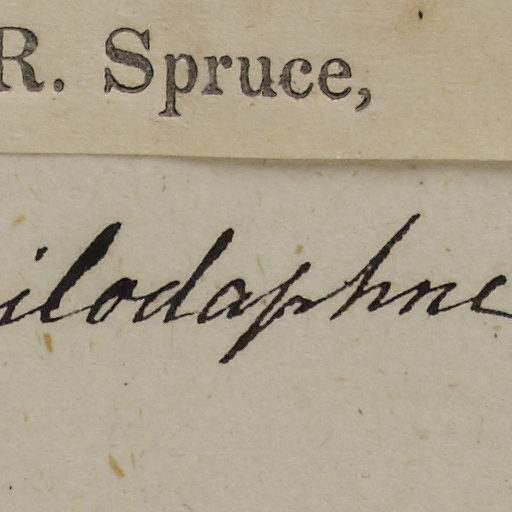 R. Spruce,
ilodaphne